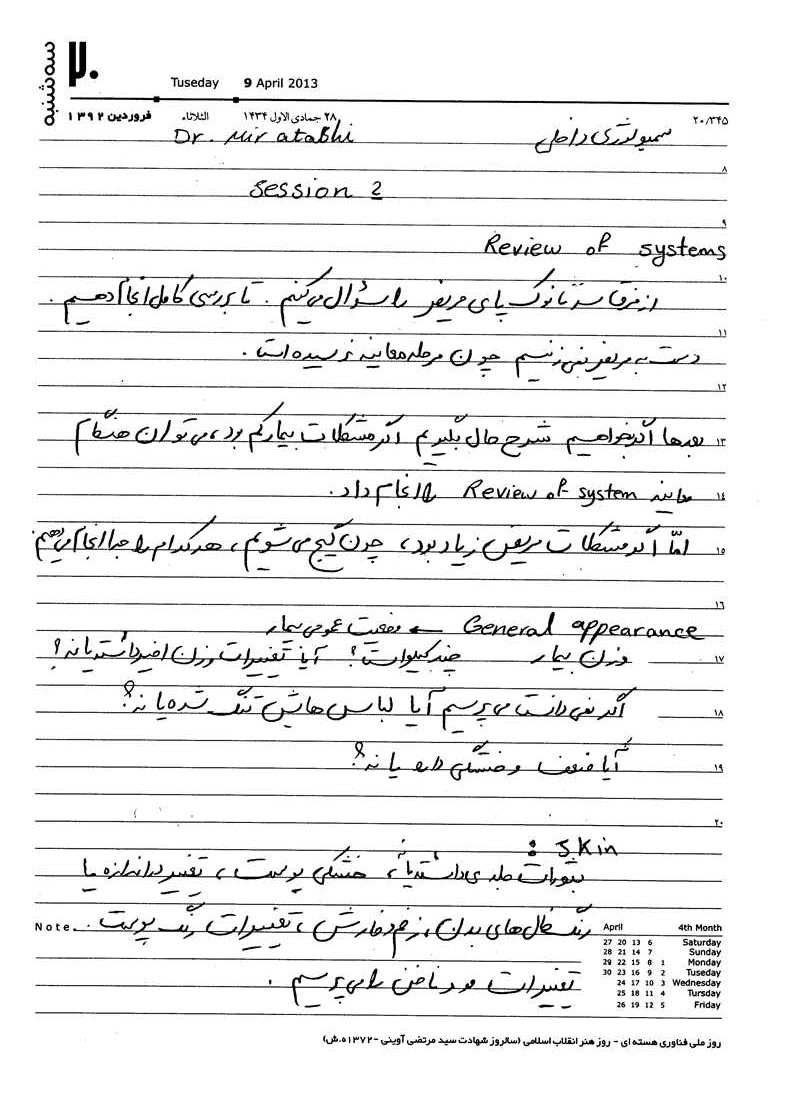 سه‌شنبه
۲۰
Tuseday 9 April 2013
فروردین ۱۳۹۲ الثلاثاء ۲۸ جمادی الاول ۱۴۳۴ ۲۰/۳۴۵
Dr. Mir atabhi سمیولوژی داخلی
۸
Session 2
۹
Review of systems
۱۰
از فرق سر تا نوک پای مریض را سؤال می‌کنیم. تا بررسی کامل انجام دهیم.
۱۱
دست به مریض نمی‌زنیم چون مرحله معاینه نرسیده است.
۱۲
۱۳ بعدها اگر بخواهیم شرح حال بگیریم اگر مشکلات بیمار کم بود، می‌توان هنگام
۱۴ معاینه Review of system را انجام داد.
۱۵ امّا اگر مشکلات مریض زیاد بود، چون گیج می‌شویم، هر کدام را جدا انجام می‌دهیم
۱۶
General appearance ← وضعیت عمومی بیمار
۱۷ وزن بیمار چند کیلو است؟ آیا تغییرات وزن اخیر داشته یا نه؟
۱۸ اگر نمی‌دانست می‌پرسیم آیا لباس هایش تنگ شده یا نه؟
۱۹ آیا ضعف و خستگی دارد یا نه؟
۲۰
Skin :
بثورات جلدی داشته یا نه، خشکی پوست، تغییر در اندازه یا
رنگ خال‌های بدن، زخم و خارش، تغییرات رنگ پوست.
تغییرات مو و ناخن را می‌پرسیم.
Note
April 4th Month
27 20 13 6 Saturday
28 21 14 7 Sunday
29 22 15 8 1 Monday
30 23 16 9 2 Tuseday
24 17 10 3 Wednesday
25 18 11 4 Tursday
26 19 12 5 Friday
روز ملی فناوری هسته ای - روز هنر انقلاب اسلامی (سالروز شهادت سید مرتضی آوینی -۱۳۷۲ه.ش)